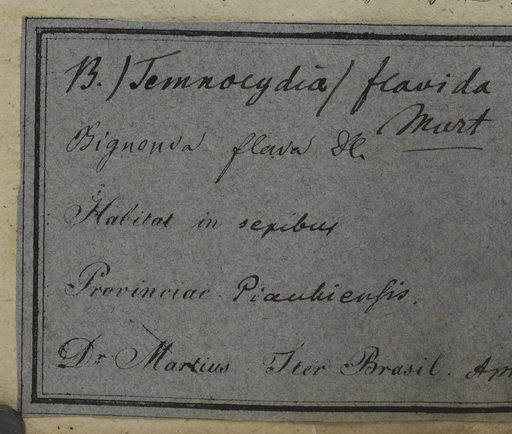 B. / Temnocydia / flavida
Mart
Bignonia flava Vel.
Habitat in sepibus
Provinciae Piauhiensis.
Dr Martius Iter Brasil. Am